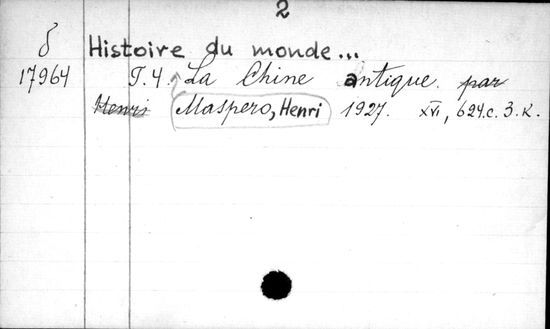 2
δ Histoire du monde...
17964 T.4. La Chine antique. par
Henri Maspero, Henri 1927. XVI, 624 c. 3.к.